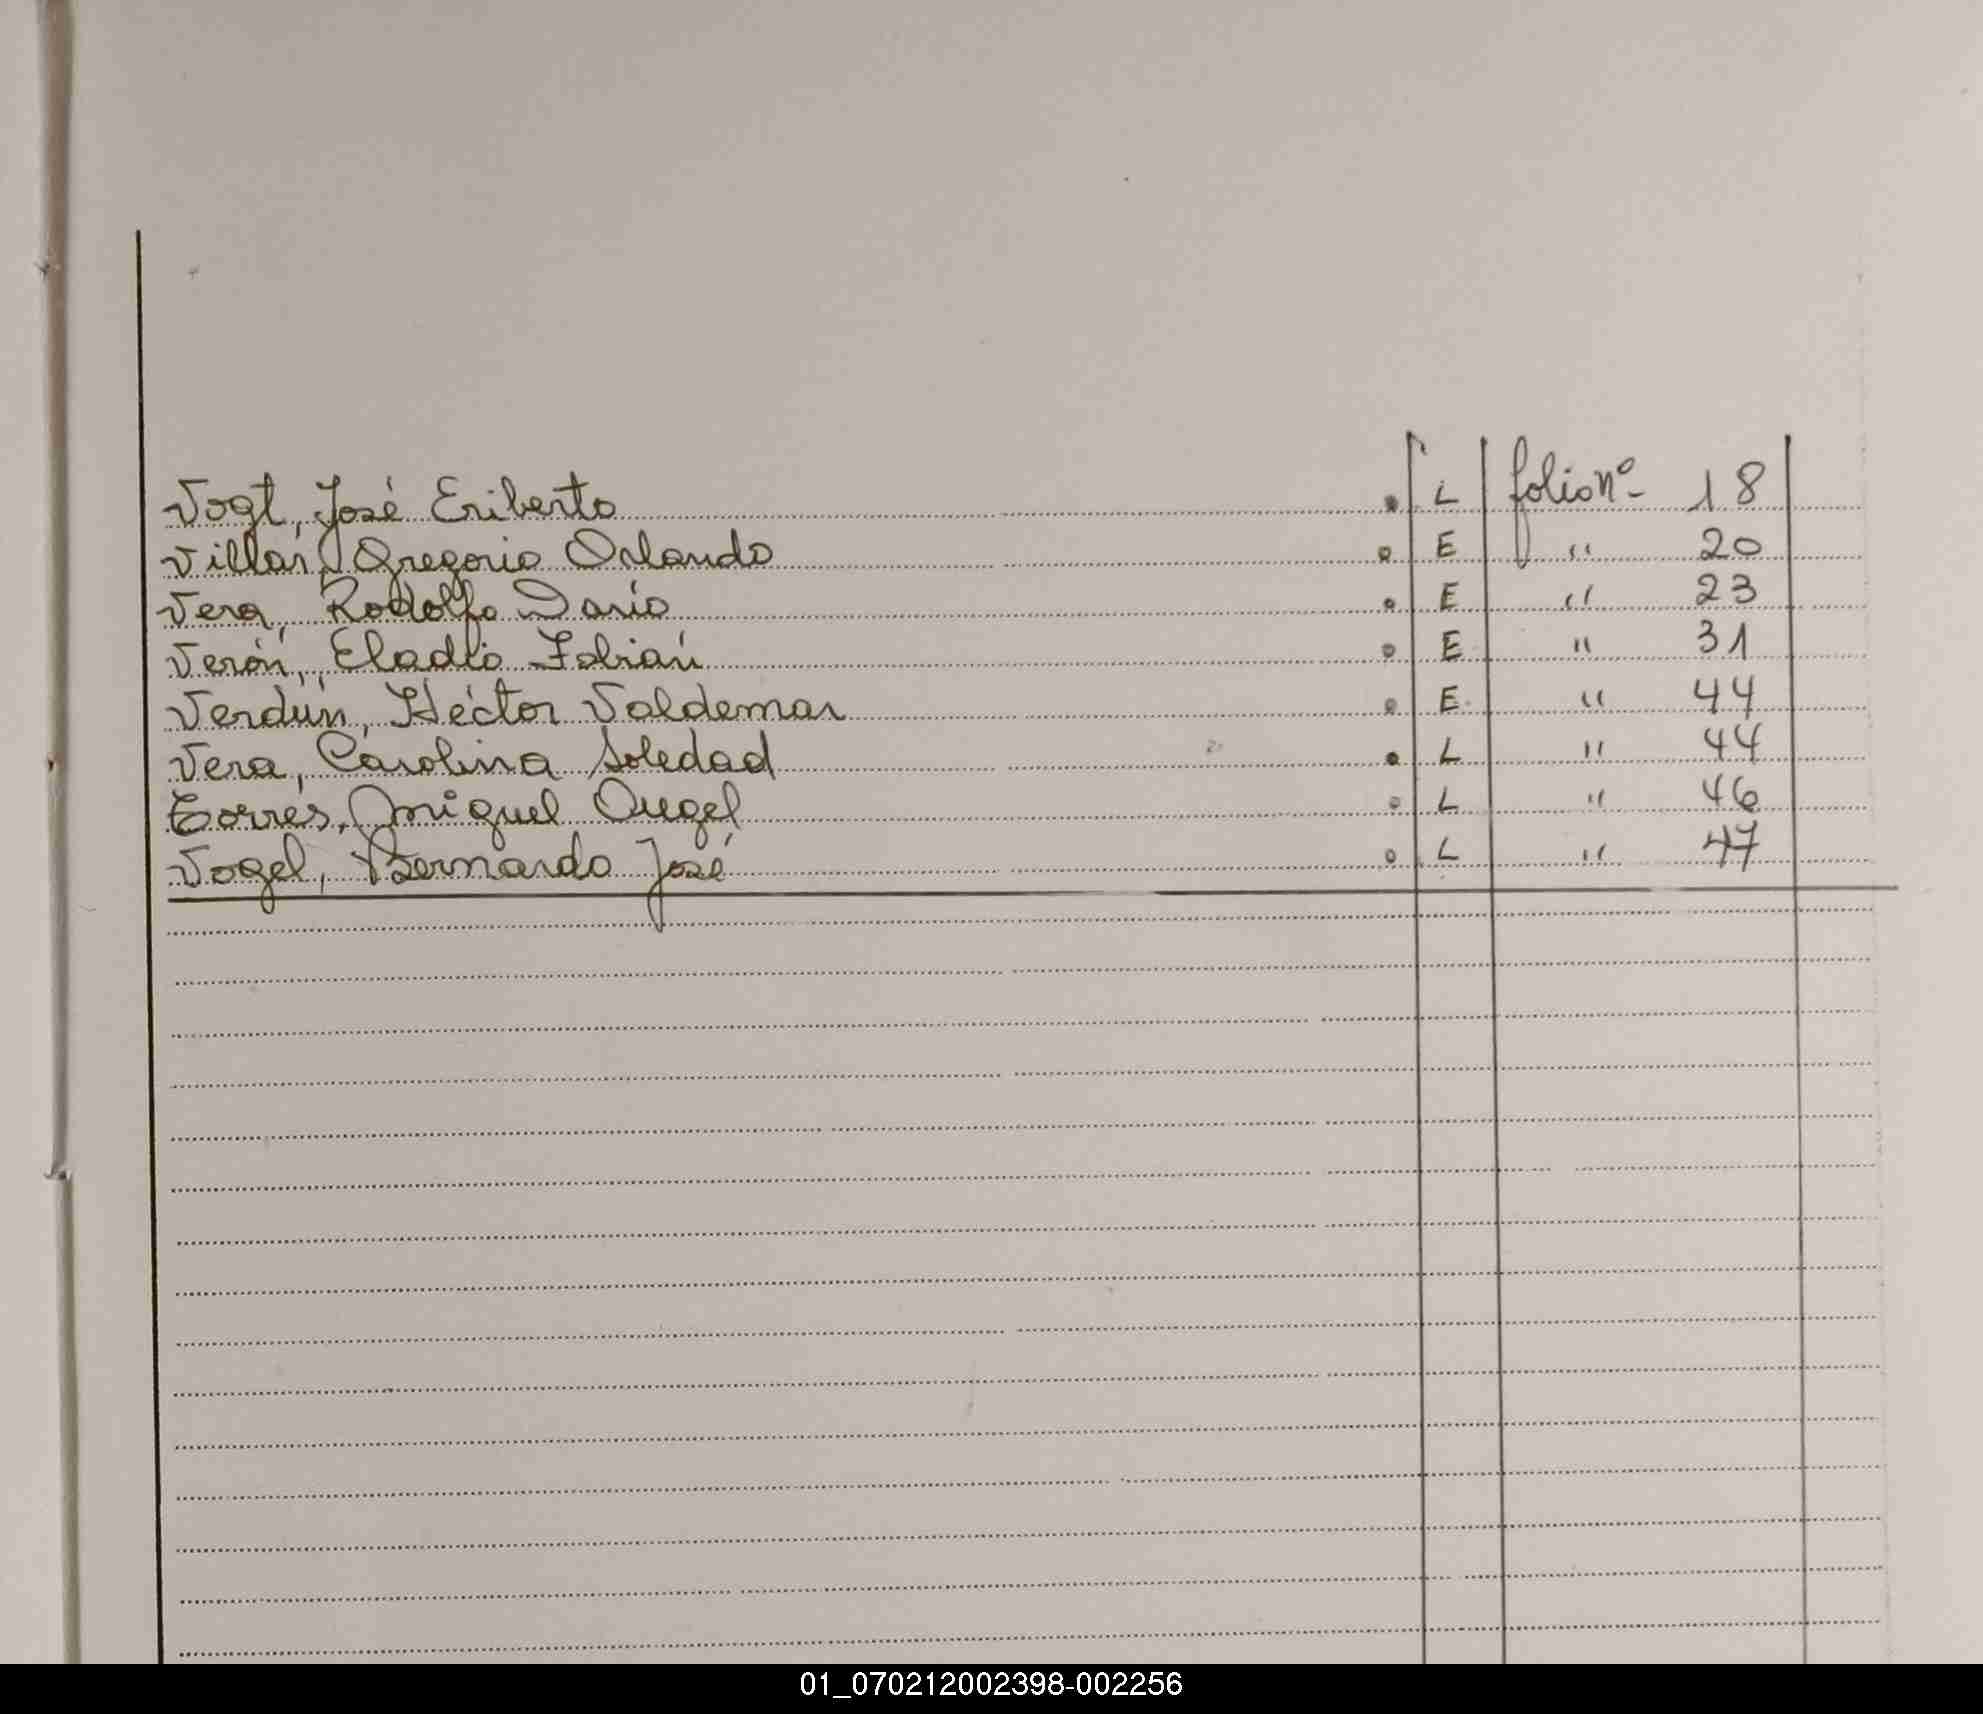 Vogt, José Eriberto . L folio nº 18
Villar, Gregorio Orlando . E " 20
Vera, Rodolfo Dario . E " 23
Verón, Eladio Fabián . E " 31
Verdún, Héctor Valdemar . E " 44
Vera, Carolina Soledad . L " 44
Torres, Miguel Angel . L " 46
Vogel, Bernardo José . L " 47
01_070212002398-002256